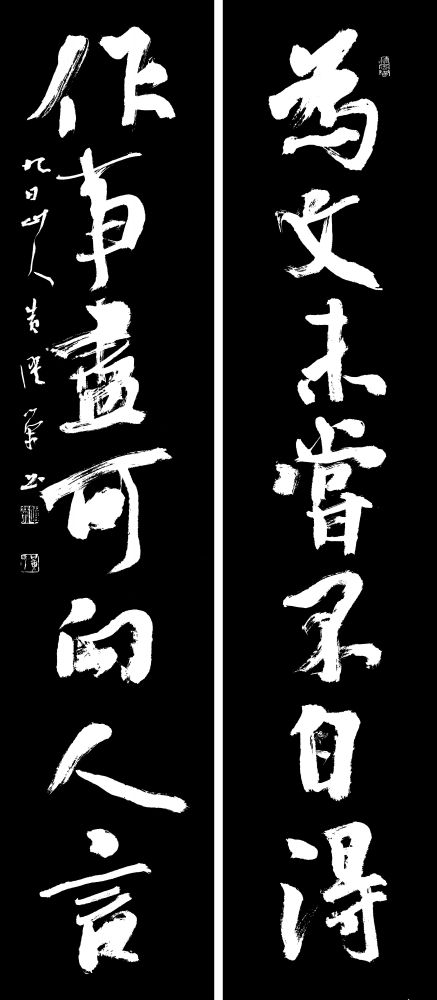 為文未嘗不自得
作事盡可向人言
九日山人黃隆榮书